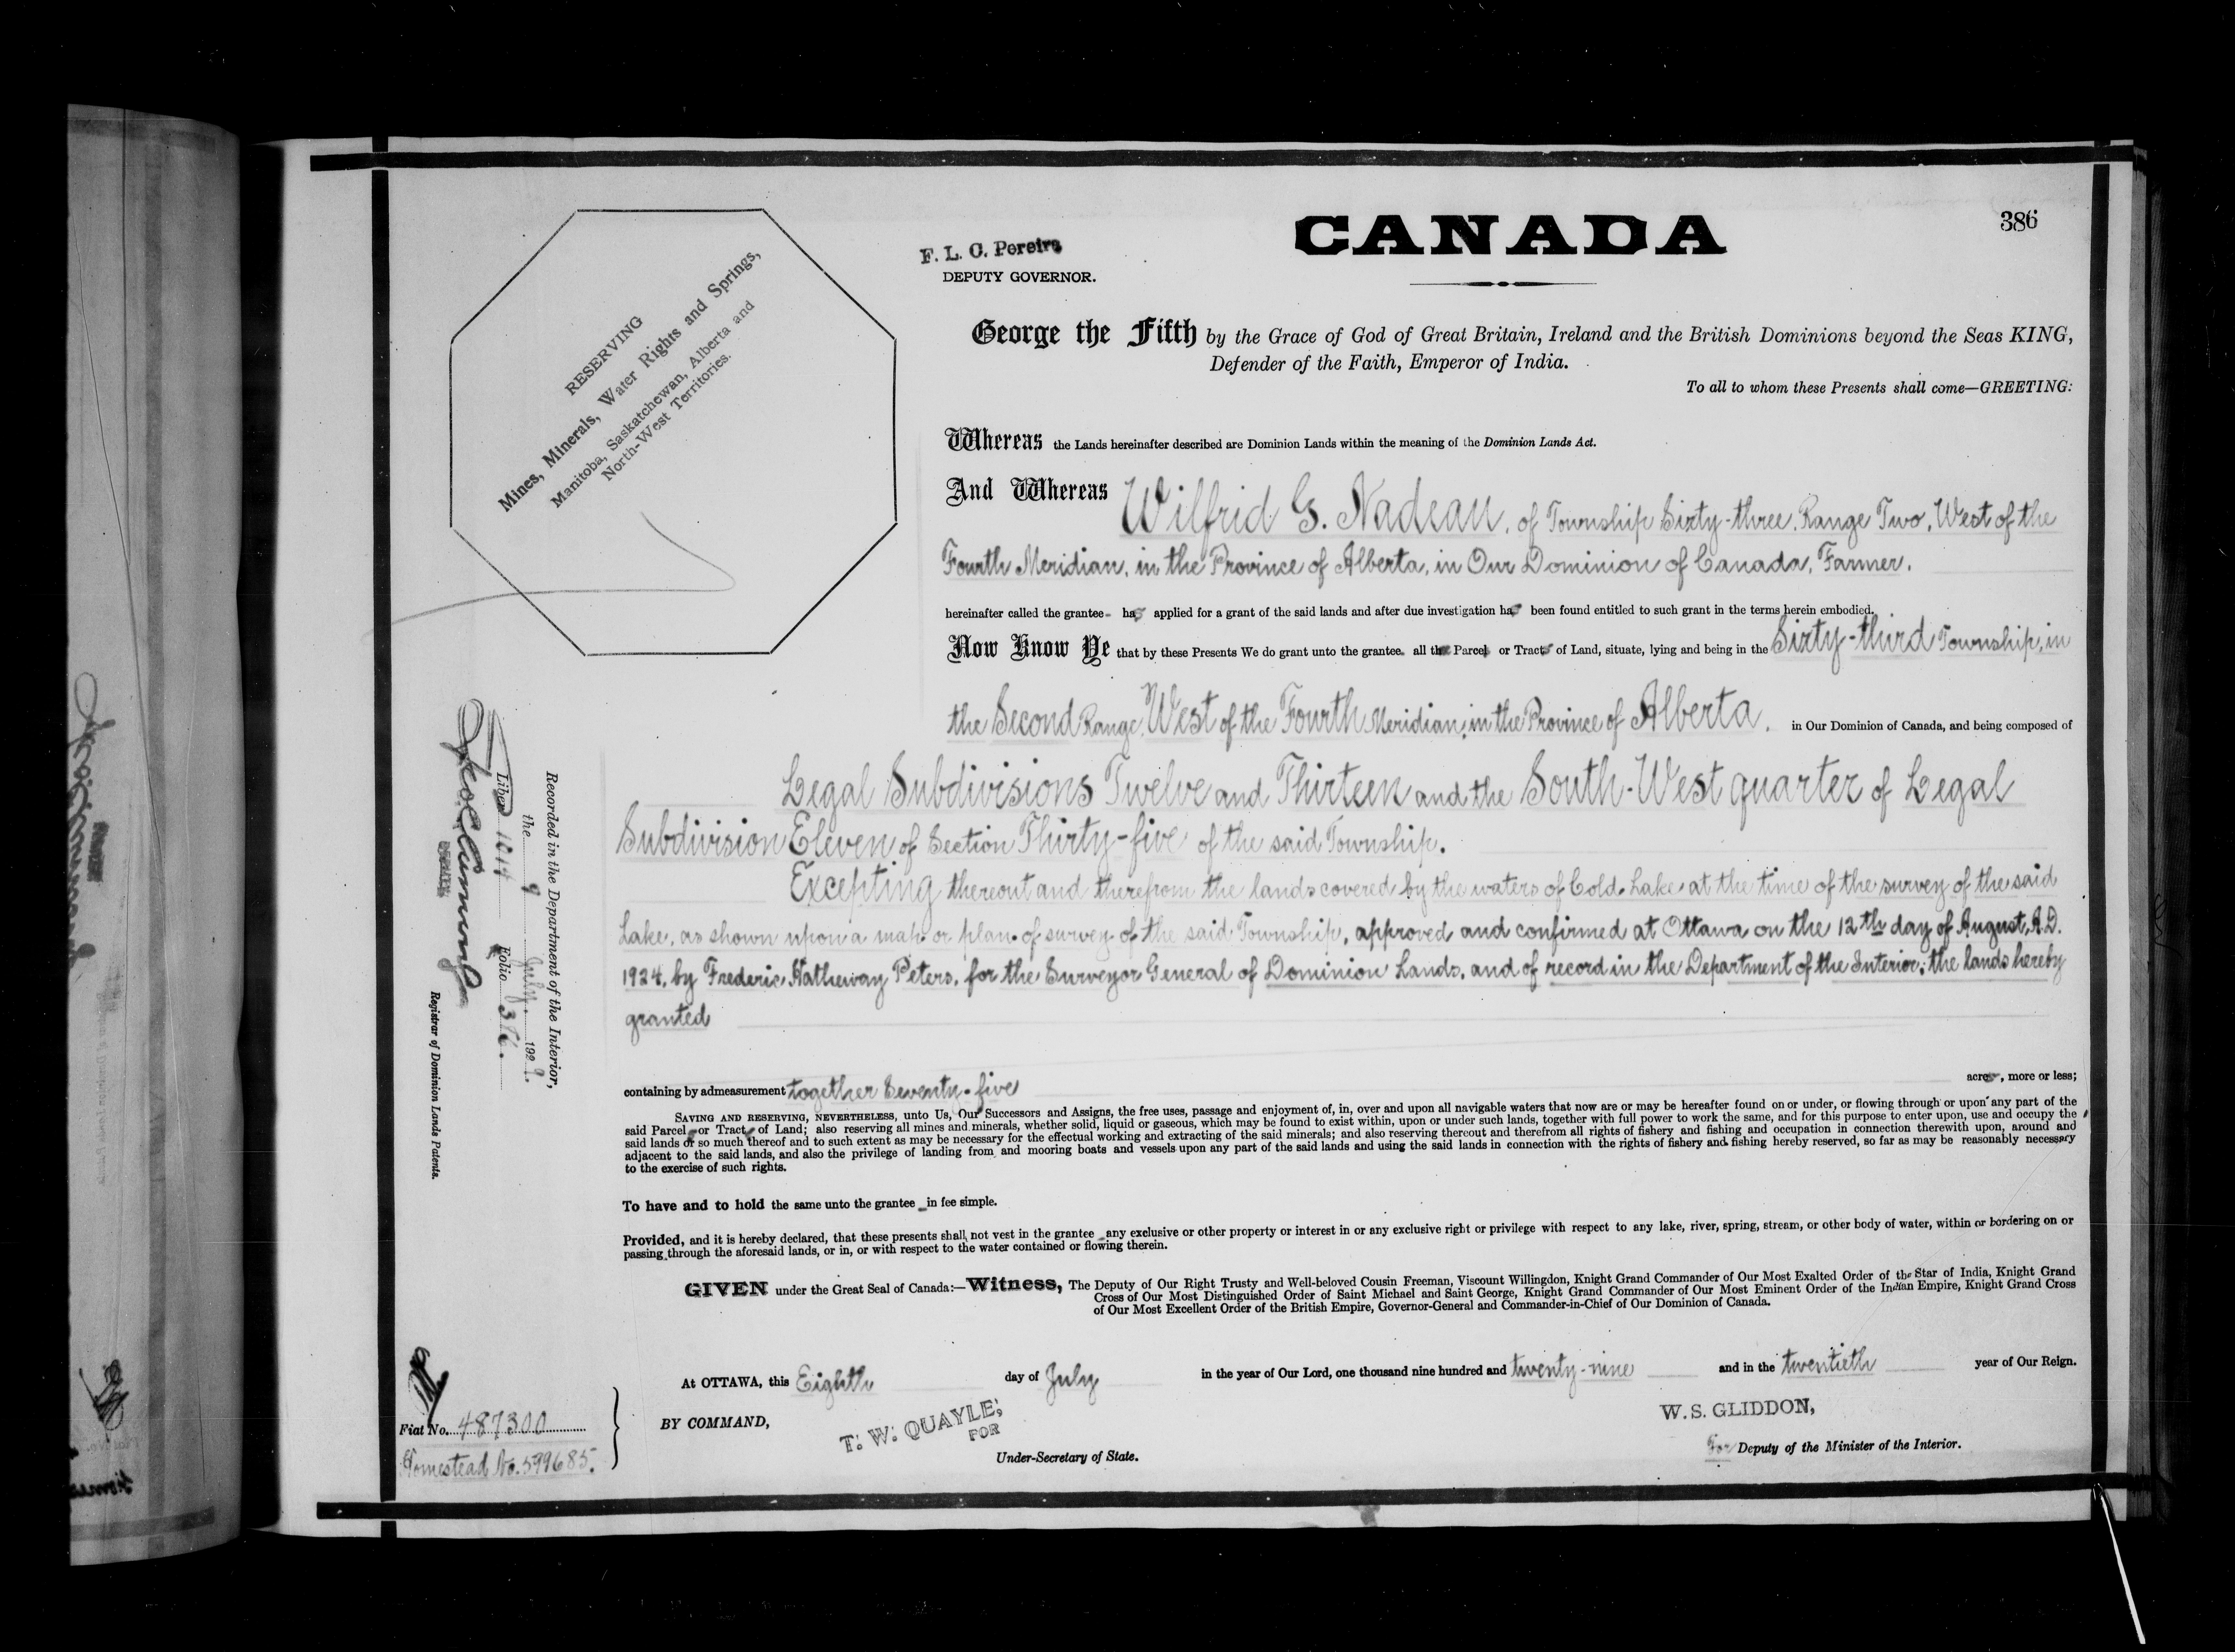 386
CANADA
F. L. C. Pereira
DEPUTY GOVERNOR.
RESERVING
Mines, Minerals, Water Rights and Springs,
Manitoba, Saskatchewan, Alberta and
North-West Territories.
George the Fifth by the Grace of God of Great Britain, Ireland and the British Dominions beyond the Seas KING,
Defender of the Faith, Emperor of India.
To all to whom these Presents shall come—GREETING:
Whereas the Lands hereinafter described are Dominion Lands within the meaning of the Dominion Lands Act.
And Whereas Wilfrid G. Nadeau, of Township Sixty-three, Range Two, West of the
Fourth Meridian, in the Province of Alberta, in Our Dominion of Canada, Farmer.
hereinafter called the grantee has applied for a grant of the said lands and after due investigation has been found entitled to such grant in the terms herein embodied.
Now Know Ye that by these Presents We do grant unto the grantee all the Parcel or Tract of Land, situate, lying and being in the Sixty-third Township, in
the Second Range, West of the Fourth Meridian, in the Province of Alberta, in Our Dominion of Canada, and being composed of
Legal Subdivisions Twelve and Thirteen and the South-West quarter of Legal
Subdivision Eleven of Section Thirty-five of the said Township.
Excepting thereout and therefrom the lands covered by the waters of Cold Lake at the time of the survey of the said
Lake, as shown upon a map or plan of survey of the said Township, approved and confirmed at Ottawa on the 12th day of August, A.D.
1924, by Frederic Hatheway Peters, for the Surveyor General of Dominion Lands, and of record in the Department of the Interior; the lands hereby
granted
containing by admeasurement together Seventy-five acres, more or less;
SAVING AND RESERVING, NEVERTHELESS, unto Us, Our Successors and Assigns, the free uses, passage and enjoyment of, in, over and upon all navigable waters that now are or may be hereafter found on or under, or flowing through or upon any part of the
said Parcel or Tract of Land; also reserving all mines and minerals, whether solid, liquid or gaseous, which may be found to exist within, upon or under such lands, together with full power to work the same, and for this purpose to enter upon, use and occupy the
said lands or so much thereof and to such extent as may be necessary for the effectual working and extracting of the said minerals; and also reserving thereout and therefrom all rights of fishery and fishing and occupation in connection therewith upon, around and
adjacent to the said lands, and also the privilege of landing from and mooring boats and vessels upon any part of the said lands and using the said lands in connection with the rights of fishery and fishing hereby reserved, so far as may be reasonably necessary
to the exercise of such rights.
To have and to hold the same unto the grantee in fee simple.
Provided, and it is hereby declared, that these presents shall not vest in the grantee any exclusive or other property or interest in or any exclusive right or privilege with respect to any lake, river, spring, stream, or other body of water, within or bordering on or
passing through the aforesaid lands, or in, or with respect to the water contained or flowing therein.
GIVEN under the Great Seal of Canada:—Witness, The Deputy of Our Right Trusty and Well-beloved Cousin Freeman, Viscount Willingdon, Knight Grand Commander of Our Most Exalted Order of the Star of India, Knight Grand
Cross of Our Most Distinguished Order of Saint Michael and Saint George, Knight Grand Commander of Our Most Eminent Order of the Indian Empire, Knight Grand Cross
of Our Most Excellent Order of the British Empire, Governor-General and Commander-in-Chief of Our Dominion of Canada.
At OTTAWA, this Eighth day of July in the year of Our Lord, one thousand nine hundred and twenty-nine and in the twentieth year of Our Reign.
BY COMMAND,
T. W. QUAYLE,
FOR
Under-Secretary of State.
W. S. GLIDDON,
For Deputy of the Minister of the Interior.
Recorded in the Department of the Interior,
the 9 July, 1929.
Liber 1014 Folio 386.
Registrar of Dominion Lands Patents.
Fiat No. 487300
Homestead No. 599685.